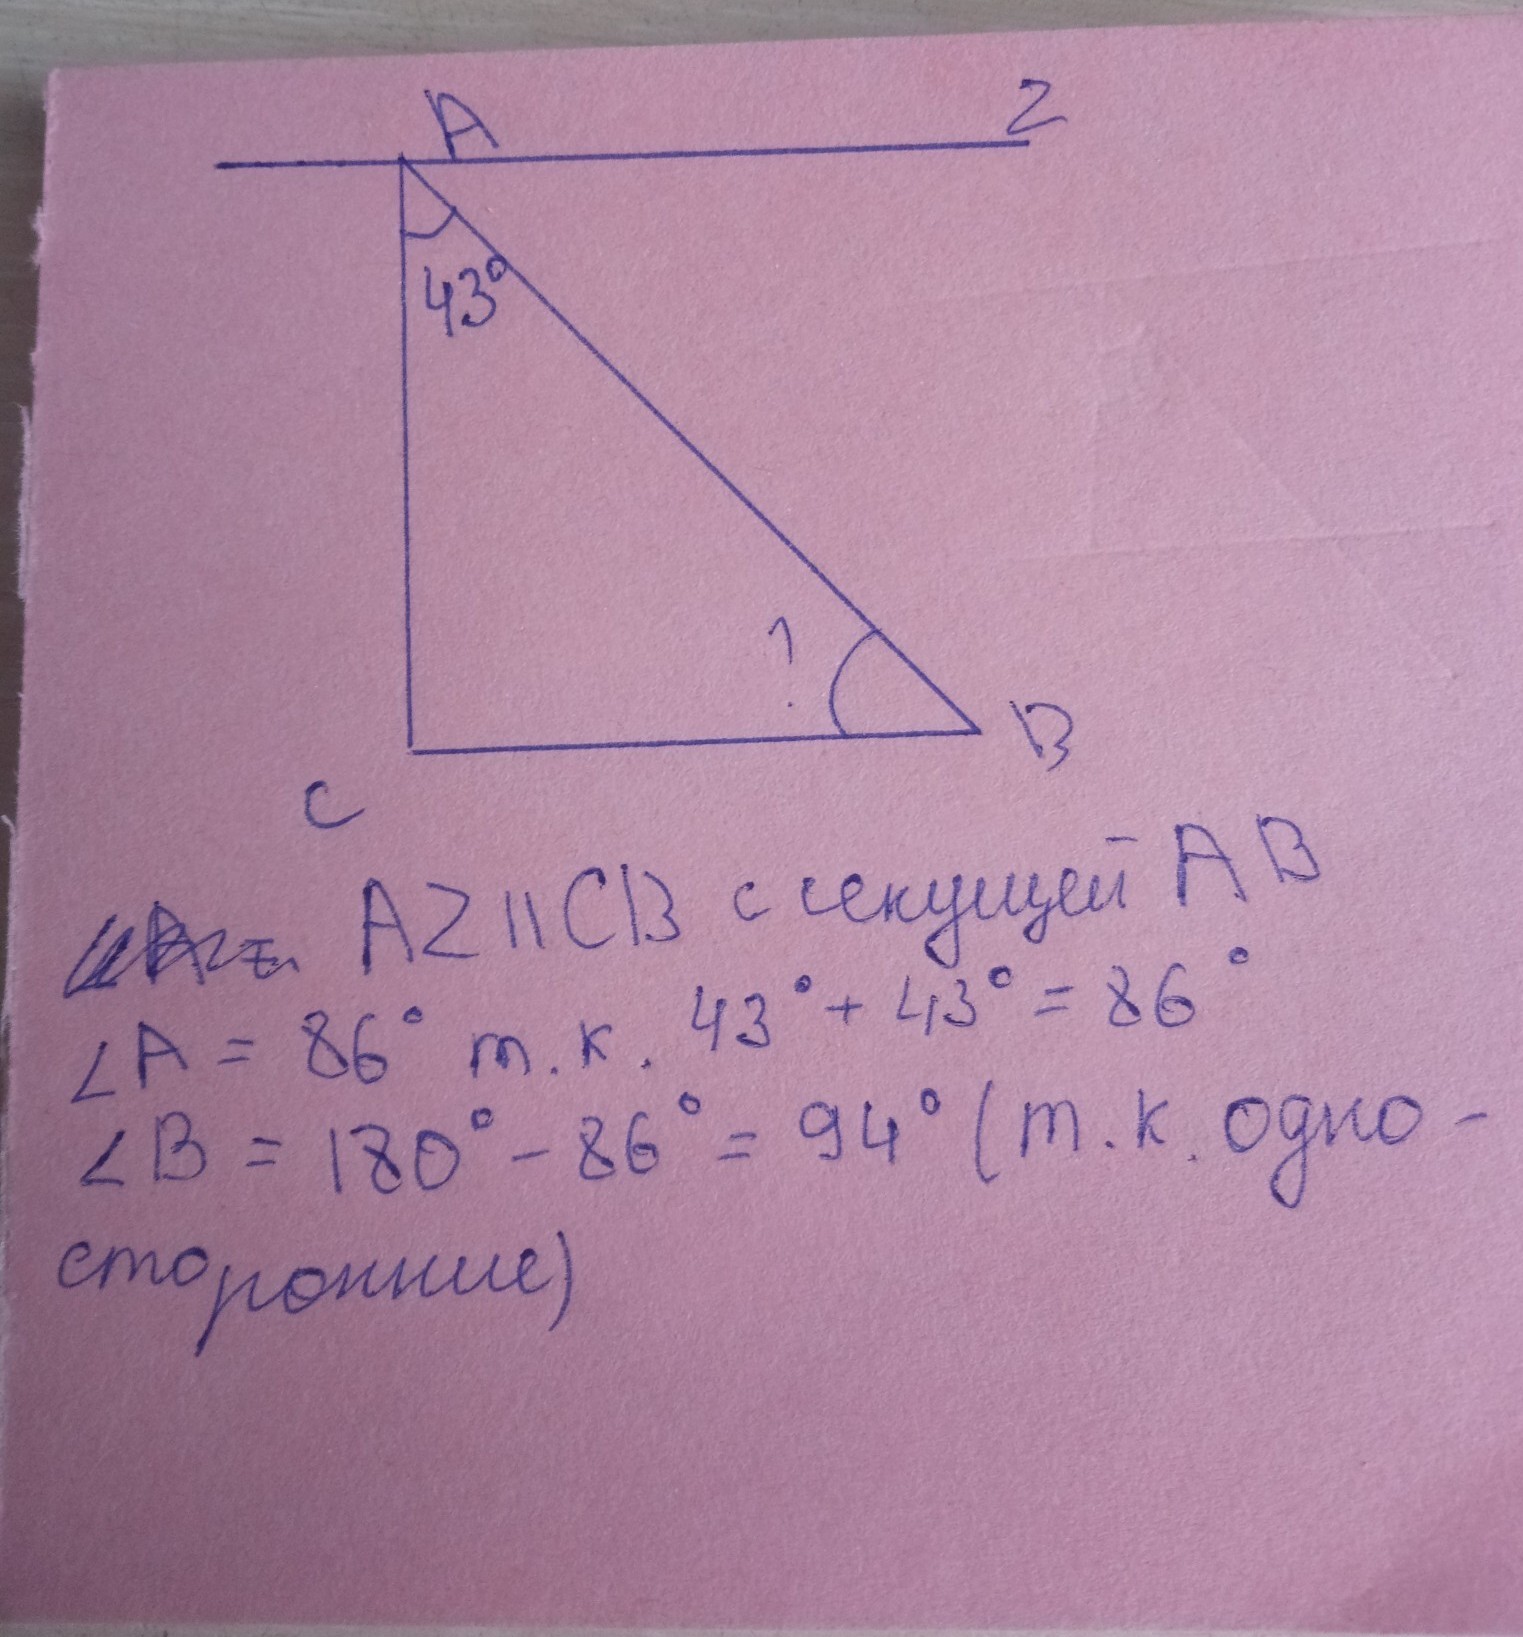 A
Z
43°
?
B
C
AZ || CB с секущей AB
∠A = 86° т.к. 43° + 43° = 86°
∠B = 180° - 86° = 94° (т.к. одно-
сторонние)